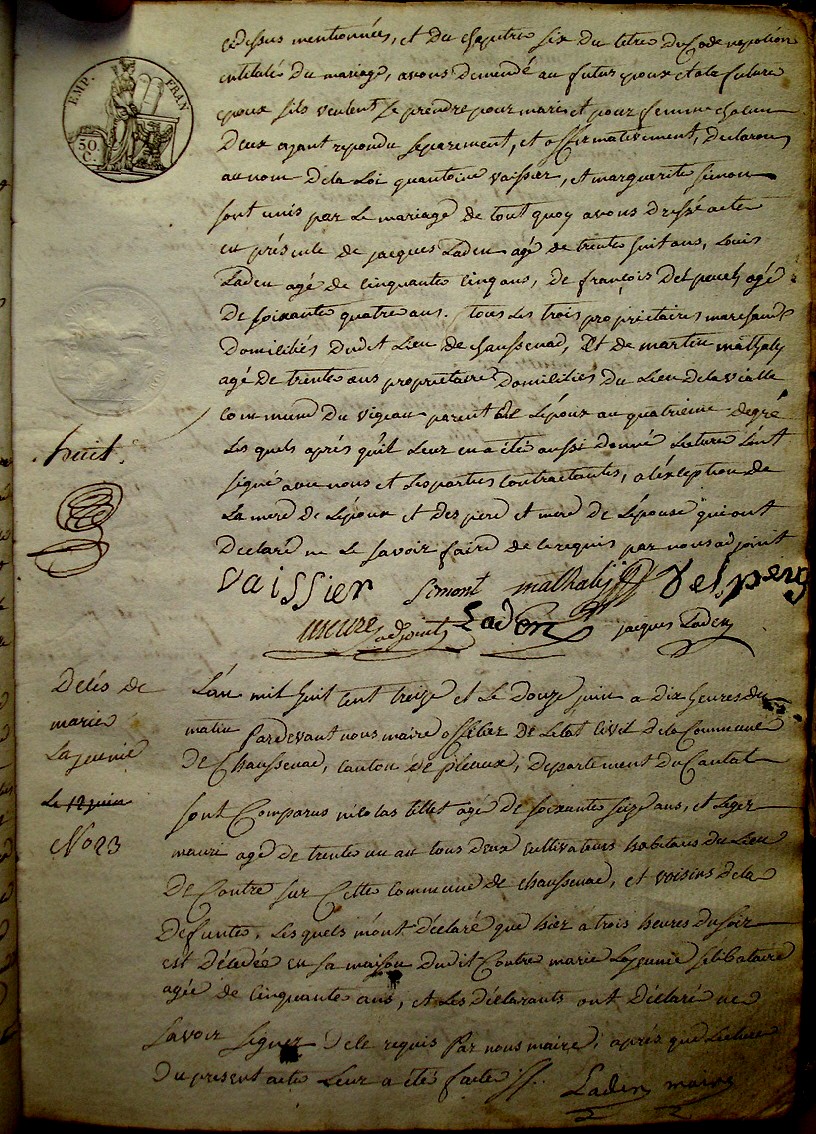 EMP. FRAN
50 C.
cidessus mentionnées, et du chapitre six du titre du Code napoléon
intitulé du mariage, avons demandé au futur epoux et a la future
epouse s'ils veulent se prendre pour mari et pour femme chacun
Deux ayant repondu separement, et affirmativement, declarons
au nom De la Loi quantoine vaissier, et marguerite simon
sont unis par Le mariage de tout quoy avons dressé acte
en présence de jacques Laden agé de trente huit ans, Louis
Laden agé de cinquante cinq ans, de françois Delpeuch agé
De soixante quatre ans. tous Les trois propriétaires marchands
Domiliciés Dudit Lieu de chaussenac, Et de martin mathaly
agé De trente ans proprietaire Domiliciés Du Lieu De la vialle
Commune Du vigean parent De L'époux au quatrieme degré
Les quels aprés qu'il Leur en a été aussi donné Lecture L'ont
signé avec nous et Les parties contractantes, a l'éxception de
La mere De L'époux et Des pere et mere De L'épouse qui ont
Declaré ne Le savoir faire de ce requis par nous adjoint
huit.
vaissier simont mathalij Delpeuch
adjoint Laden jacques Laden
Décés de
marie
Lajeunie
Le 12 juin
No 23
L'an mil huit cent treize et Le Douze juin a Dix heures du
matin Pardevant nous maire officier De Letat Civil De la Commune
De Chaussenac, canton De pleaux, Departement Du Cantal
sont Comparus nicolas tillet agé De soixante seize ans, et Leger
mauri agé de trente un an tous deux cultivateurs habitans Du Lieu
De Contre sur Cette Commune De chaussenac, et voisins De la
Defunte, Les quels m'ont Déclaré que hier a trois heures Du soir
est Décedée en sa maison Dudit Contre marie Lajeunie selibataire
agée de cinquante ans, et Les Déclarants ont Déclaré ne
savoir signer De ce requis Par nous maire, aprés que Lecture
Du present acte Leur a été faite
Laden maire